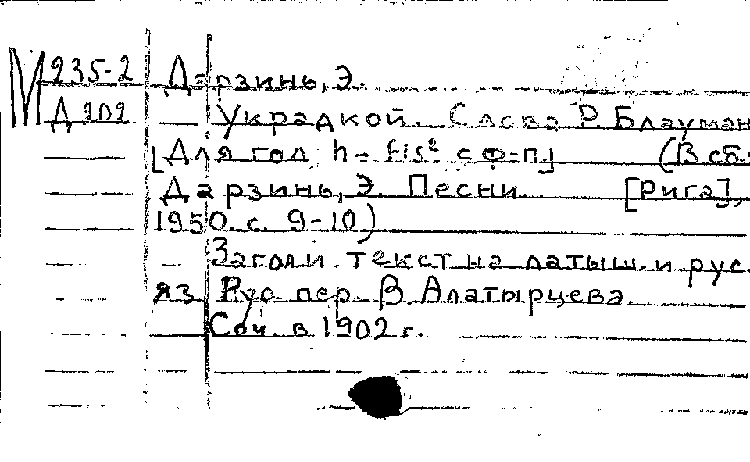 М 235-2 Дарзинь, Э.
Д 202 Украдкой. Слова Р. Блауман
[Для гол. h - fis² с ф-п] (В сб.:
Дарзинь, Э. Песни. [Рига],
1950. с. 9-10)
Загол. и текст на латыш. и рус.
яз. Рус. пер. В. Алатырцева.
Соч. в 1902 г.